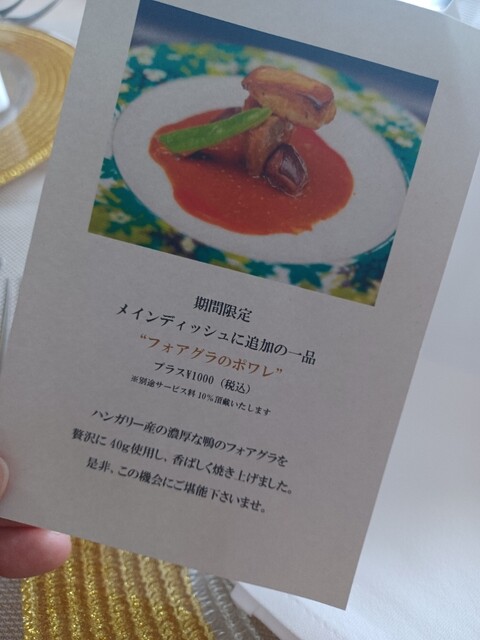 期間限定
メインディッシュに追加の一品
“フォアグラのポワレ”
プラス¥1000（税込）
※別途サービス料10%頂戴いたします
ハンガリー産の濃厚な鴨のフォアグラを
贅沢に40g使用し、香ばしく焼き上げました。
是非。この機会にご堪能下さいませ。